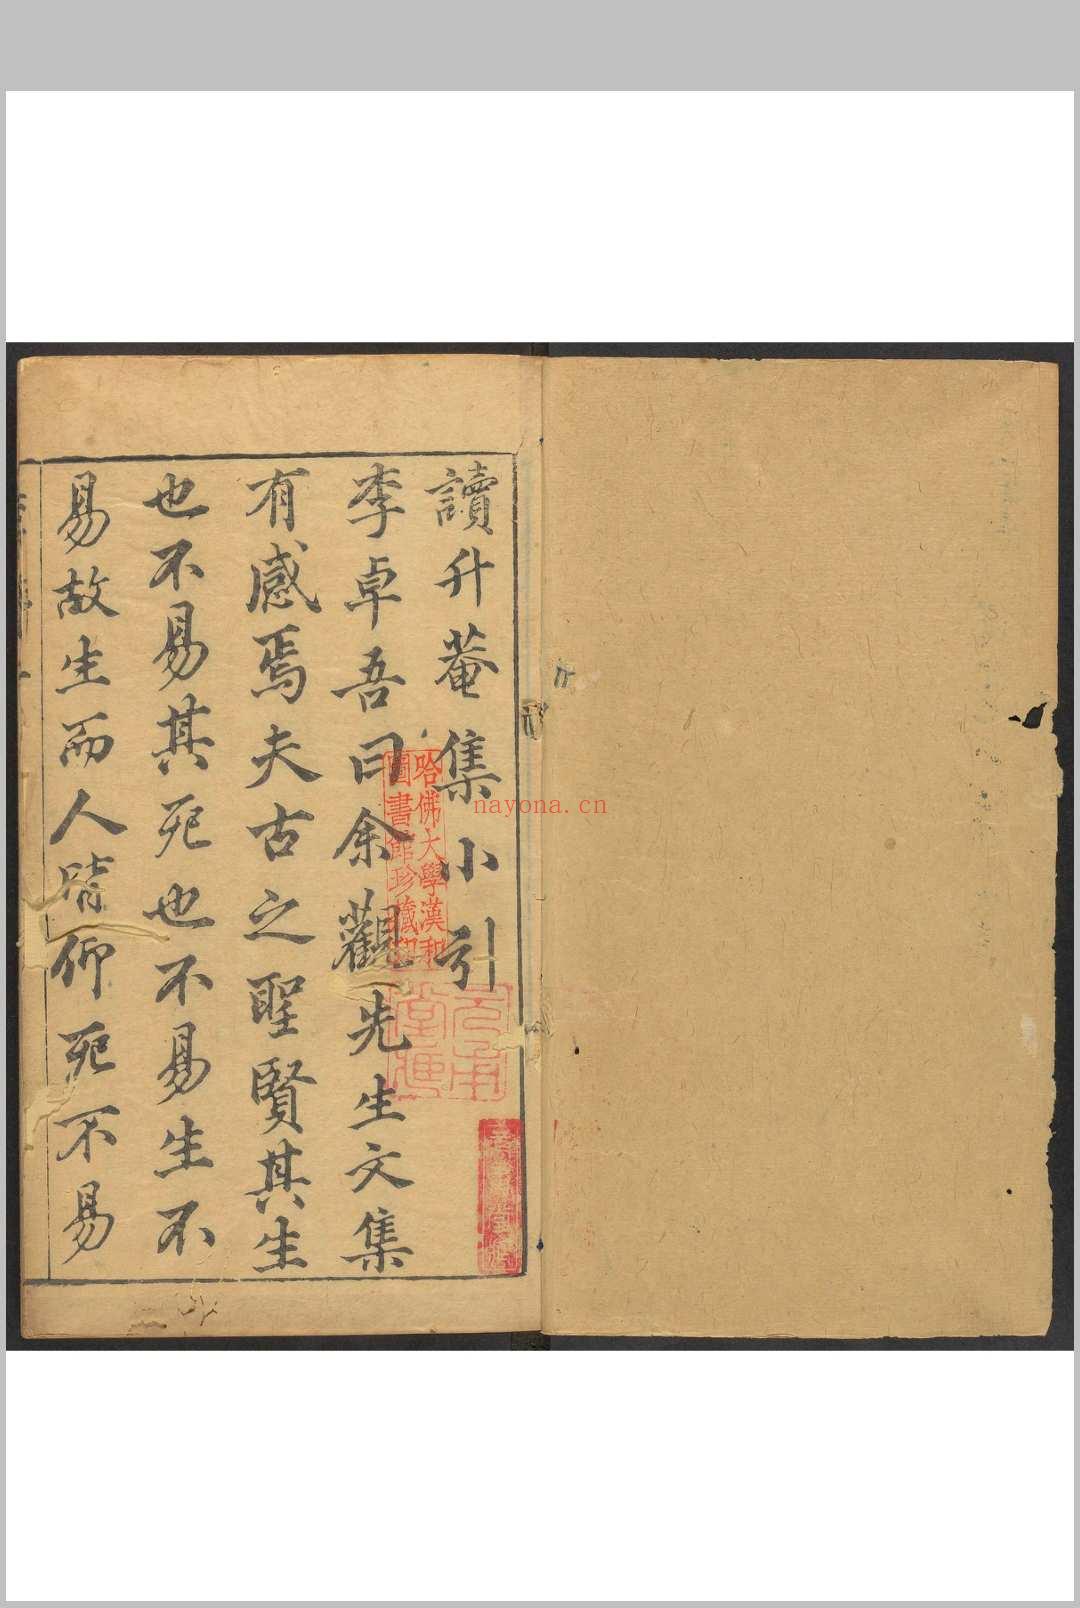 讀升菴集小引
李卓吾曰余觀先生文集
有感焉夫古之聖賢其生
也不易其死也不易生不
易故生而人皆仰死不易
哈佛大學漢和
圖書館珍藏印
nayona.cn